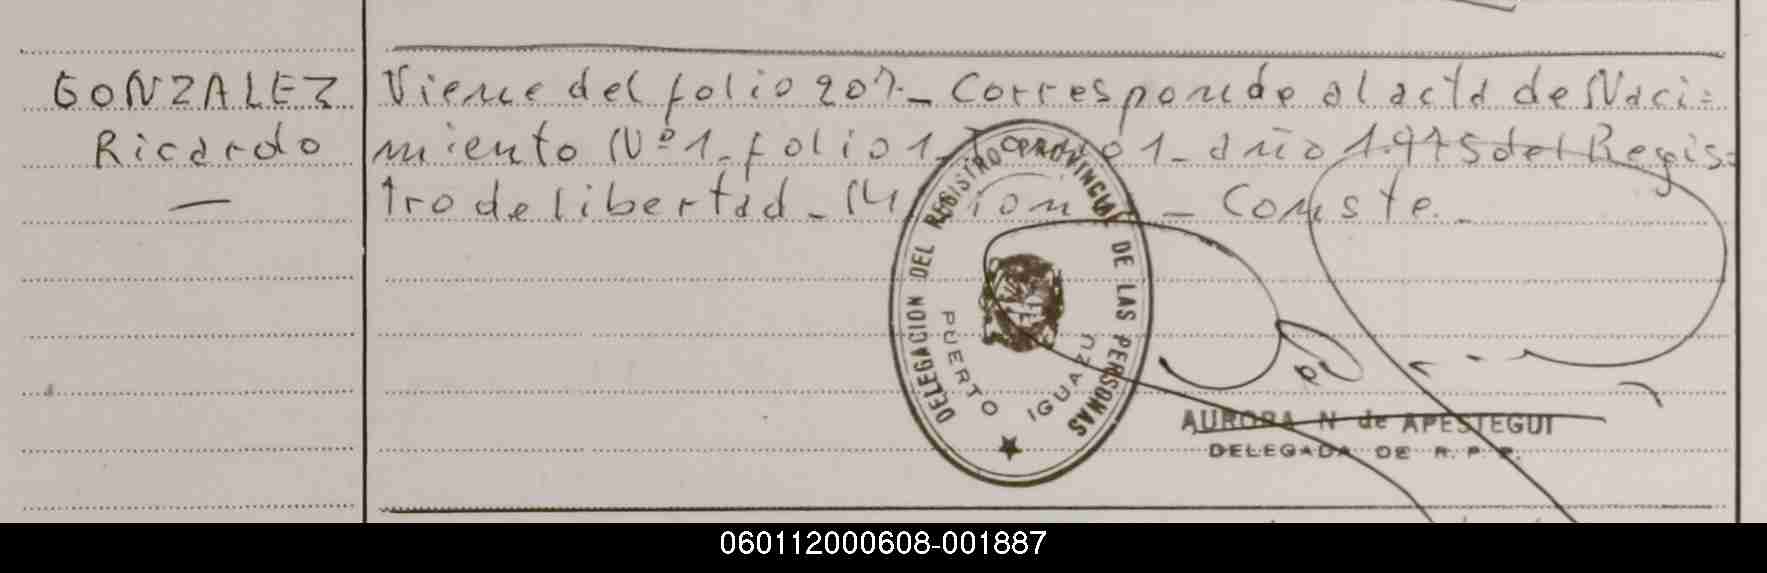 GONZALEZ
Ricardo
—
Viene del folio 207._ Corresponde al acta de Naci=
miento Nº 1_ folio 1_ Tomo 1_ año 1.975 del Regis=
tro de libertad_ Misiones_ Conste._
DELEGACION DEL REGISTRO PROVINCIAL DE LAS PERSONAS
PUERTO IGUAZU
AURORA N de APESTEGUI
DELEGADA DE R. P. P.
060112000608-001887